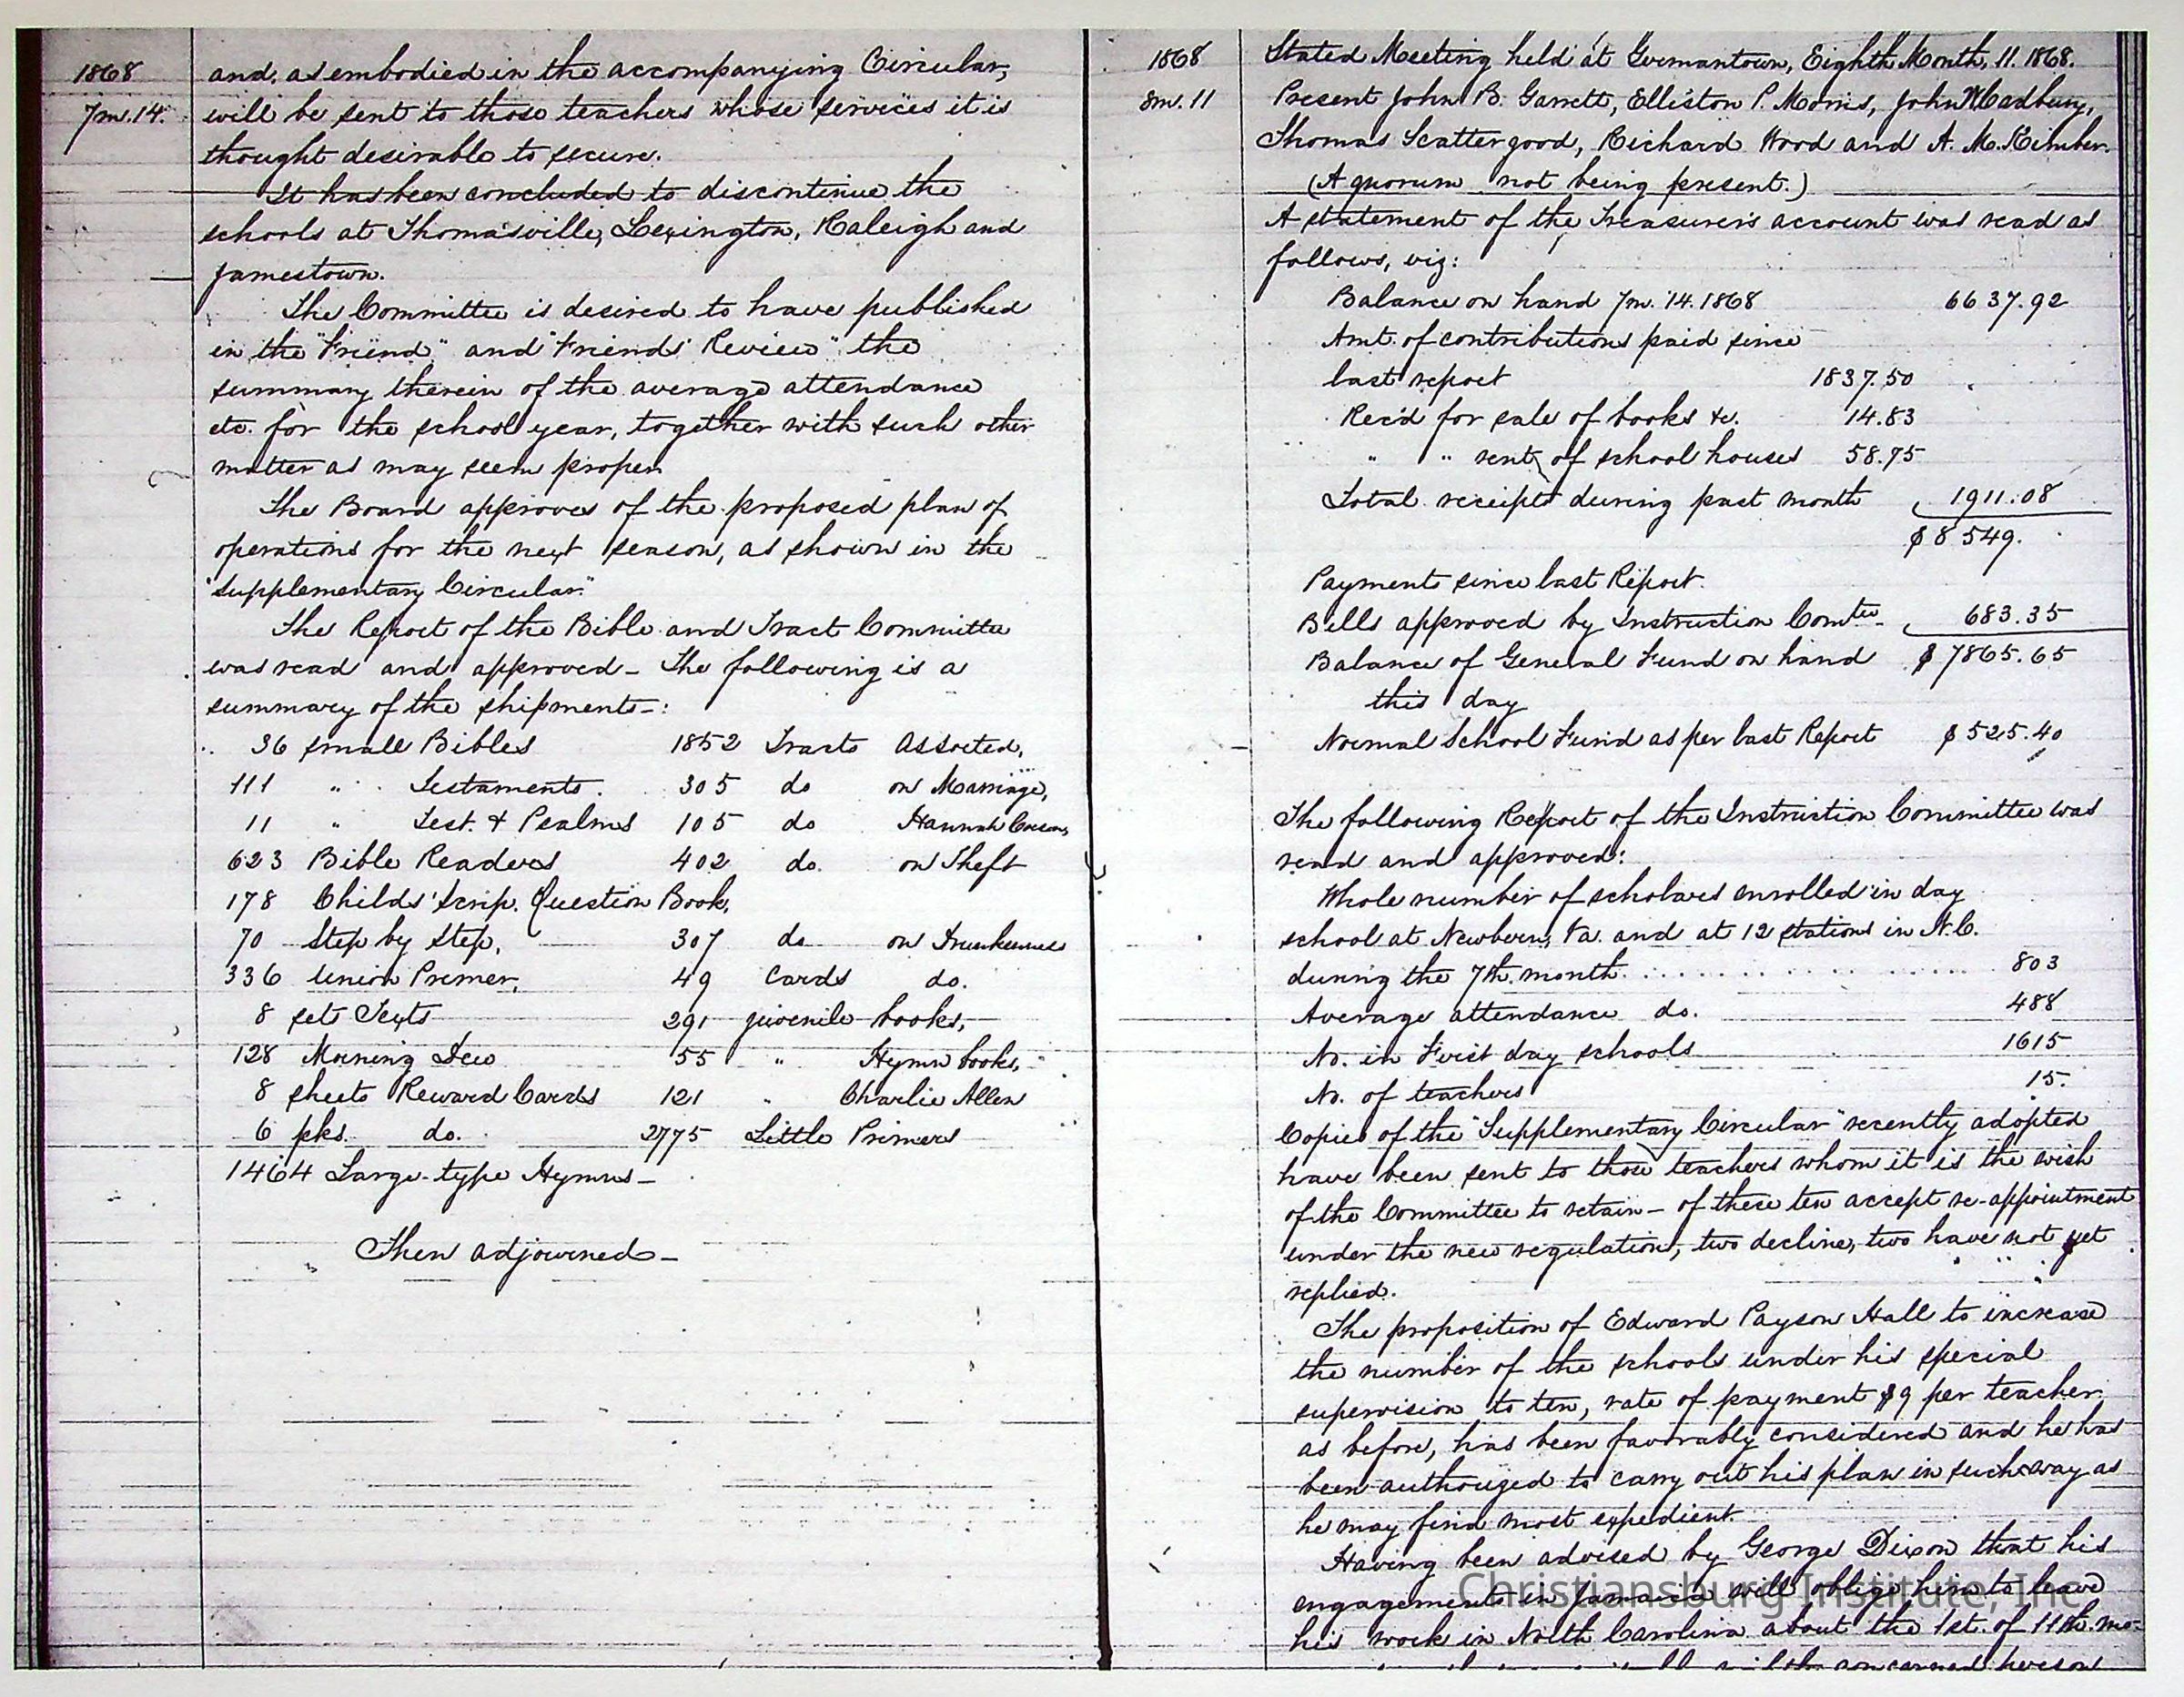 1868
7m.14.
and, as embodied in the accompanying Circular,
will be sent to those teachers whose services it is
thought desirable to secure.
It has been concluded to discontinue the
schools at Thomasville, Lexington, Raleigh and
Jamestown.
The Committee is desired to have published
in the "Friend" and "Friends' Review" the
summary therein of the average attendance
etc. for the school year, together with such other
matter as may seem proper
The Board approves of the proposed plan of
operations for the next season, as shown in the
"Supplementary Circular."
The Report of the Bible and Tract Committee
was read and approved - The following is a
summary of the shipments-:
36 small Bibles 1852 Tracts Assorted,
111 " Testaments. 305 do on Marriage,
11 " Test. & Psalms 105 do Hannah Corson,
623 Bible Readers 402 do. on Theft
178 Childs' Scrip. Question Book,
70 Step by Step, 307 do on Drunkenness
336 Union Primer, 49 Cards do.
8 sets Texts 291 juvenile books,
128 Morning Dew 55 " Hymn books,
8 sheets Reward Cards 121 " Charlie Allen
6 pks. do. 2775 Little Primers
1464 Large-type Hymns-
Then adjourned-
1868
8m.11
Stated Meeting held at Germantown, Eighth Month, 11. 1868.
Present John B. Garrett, Elliston P. Morris, John W Cadbury,
Thomas Scattergood, Richard Wood and A. M. Kimber.
(A quorum not being present.)
A statement of the Treasurer's account was read as
follows, viz:
Balance on hand 7m. 14. 1868 6637.92
Amt. of contributions paid since
last report 1837.50
Rec'd for sale of books &c. 14.83
" " rent of school houses 58.75
Total receipts during past month 1911.08
$8549.
Payments since last Report.
Bills approved by Instruction Comtee 683.35
Balance of General Fund on hand $7865.65
this day
Normal School Fund as per last Report $525.40
The following Report of the Instruction Committee was
read and approved:
Whole number of scholars enrolled in day
school at Newbern, Va. and at 12 stations in N.C.
during the 7th. month. . . . . . . . . . . . . . . . 803
Average attendance do. 488
No. in First day schools 1615
No. of teachers 15.
Copies of the "Supplementary Circular" recently adopted
have been sent to those teachers whom it is the wish
of the Committee to retain - of these ten accept re-appointment
under the new regulation, two decline, two have not yet
replied.
The proposition of Edward Payson Hall to increase
the number of the schools under his special
supervision to ten, rate of payment $9 per teacher,
as before, has been favorably considered and he has
been authorized to carry out his plan in such way as
he may find most expedient.
Having been advised by George Dixon that his
engagements in Jamaica will oblige him to leave
his work in North Carolina about the 1st. of 11th. mo.
concerned person
Christiansburg Institute, Inc